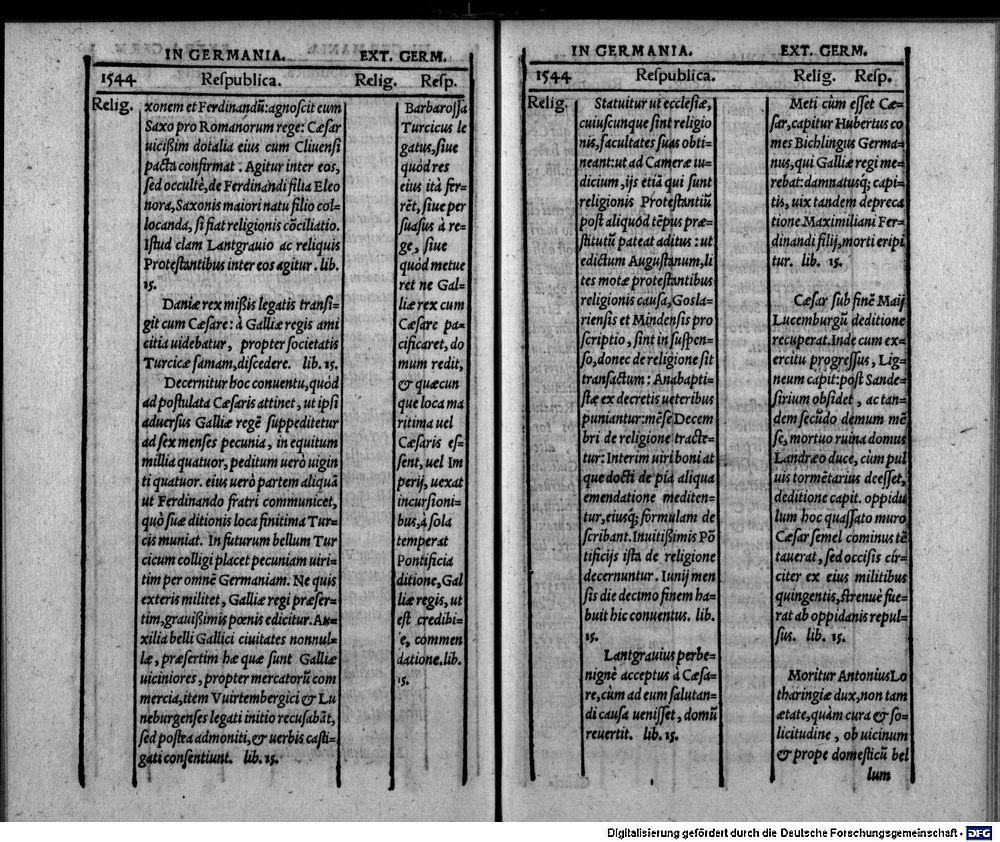 IN GERMANIA. EXT. GERM.
1544 Respublica. Relig. Resp.
Relig.
xonem et Ferdinandū: agnoscit eum
Saxo pro Romanorum rege: Cæsar
uicißim dotalia eius cum Cliuensi
pacta confirmat. Agitur inter eos,
sed occultè, de Ferdinandi filia Eleo
nora, Saxonis maiori natu filio col=
locanda, si fiat religionis cōciliatio.
istud clam Lantgrauio ac reliquis
Protestantibus inter eos agitur. lib.
15.
Daniæ rex mißis legatis transi=
git cum Cæsare: à Galliæ regis ami
citia uidebatur, propter societatis
Turcicæ famam, discedere. lib. 15.
Decernitur hoc conuentu, quòd
ad postulata Cæsaris attinet, ut ipsi
aduersus Galliæ regē suppeditetur
ad sex menses pecunia, in equitum
millia quatuor, peditum uerò uigin
ti quatuor. eius uerò partem aliquā
ut Ferdinando fratri communicet,
quò suæ ditionis loca finitima Tur=
cis muniat. In futurum bellum Tur
cicum colligi placet pecuniam uiri=
tim per omnē Germaniam. Ne quis
exteris militet, Galliæ regi præser=
tim, grauißimis pœnis edicitur. Au=
xilia belli Gallici ciuitates nonnul=
læ, præsertim hæ quæ sunt Galliæ
uiciniores, propter mercatorū com
mercia, item Vuirtembergici & Lu
neburgenses legati initio recusabāt,
sed postea admoniti, & uerbis casti=
gati consentiunt. lib. 15.
Barbarossa
Turcicus le
gatus, siue
quòd res
eius ità fer=
rēt, siue per
suasus à re=
ge, siue
quòd metue
ret ne Gal=
liæ rex cum
Cæsare pa=
cificaret, do
mum redit,
& quæcun
que loca ma
ritima uel
Cæsaris es=
sent, uel Im
perij, uexat
incursioni=
bus, à sola
temperat
Pontificia
ditione, Gal
liæ regis, ut
est credibi=
e, commen
datione. lib.
15.
IN GERMANIA. EXT. GERM.
1544 Respublica. Relig. Resp.
Relig.
Statuitur ut ecclesiæ,
cuiuscunque sint religio
nis, facultates suas obti=
neant: ut ad Cameræ iu=
dicium, ijs etiā qui sunt
religionis Protestantiū
post aliquod tēpus præ=
stitutū pateat aditus: ut
edictum Augustanum, li
tes motæ protestantibus
religionis causa, Gosla=
riensis et Mindensis pro
scriptio, sint in suspen=
so, donec de religione sit
transactum: Anabapti=
stæ ex decretis ueteribus
puniantur: mēse Decem
bri de religione tracte=
tur: Interim uiri boni at
que docti de pia aliqua
emendatione mediten=
tur, eiusq; formulam de
scribant. Inuitißimis Pō
tificijs ista de religione
decernuntur. Iunij men
sis die decimo finem ha=
buit hic conuentus. lib.
15.
Lantgrauius perbe=
nignè acceptus à Cæsa=
re, cùm ad eum salutan=
di causa uenisset, domū
reuertit. lib. 15.
Meti cùm esset Cæ=
sar, capitur Hubertus co
mes Bichlingus Germa=
nus, qui Galliæ regi me=
rebat: damnatusq; capi=
tis, uix tandem depreca
tione Maximiliani Fer=
dinandi filij, morti eripi
tur. lib. 15.
Cæsar sub finē Maij
Lucemburgū deditione
recuperat. Inde cum ex=
ercitu progressus, Lig=
neum capit: post Sande=
sirium obsidet, ac tan=
dem secūdo demum mē
se, mortuo ruina domus
Landræo duce, cùm pul
uis tormētarius deesset,
deditione capit. oppidu
lum hoc quassato muro
Cæsar semel cominus tē
tauerat, sed occisis cir=
citer ex eius militibus
quingentis, strenuè fue=
rat ab oppidanis repul=
sus. lib. 15.
Moritur Antonius Lo
tharingiæ dux, non tam
ætate, quàm cura & so=
licitudine, ob uicinum
& prope domesticū bel
lum
Digitalisierung gefördert durch die Deutsche Forschungsgemeinschaft - DFG